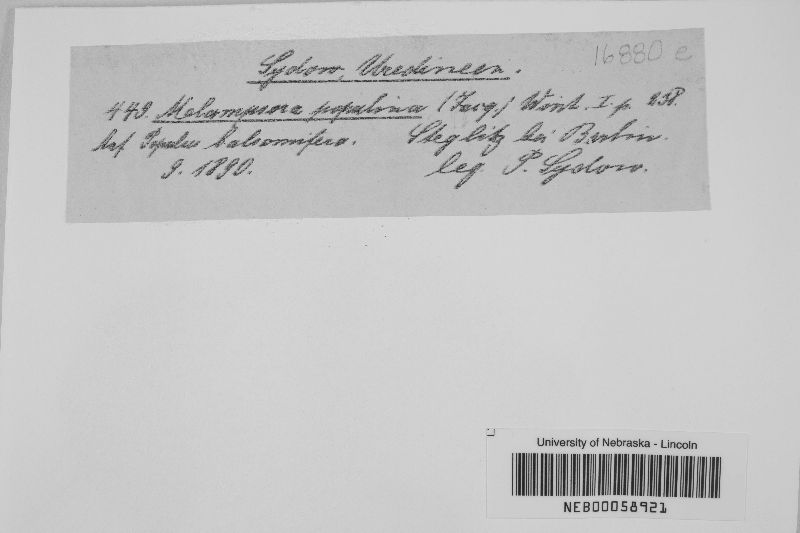 16880 e
Sydow, Uredineen.
449. Melampsora populina (Jacq.) Wint. I. p.
Auf Populus balsamifera. Steglitz bei Berlin.
9. 1890. leg P. Sydow.
University of Nebraska - Lincoln
NEB00058921